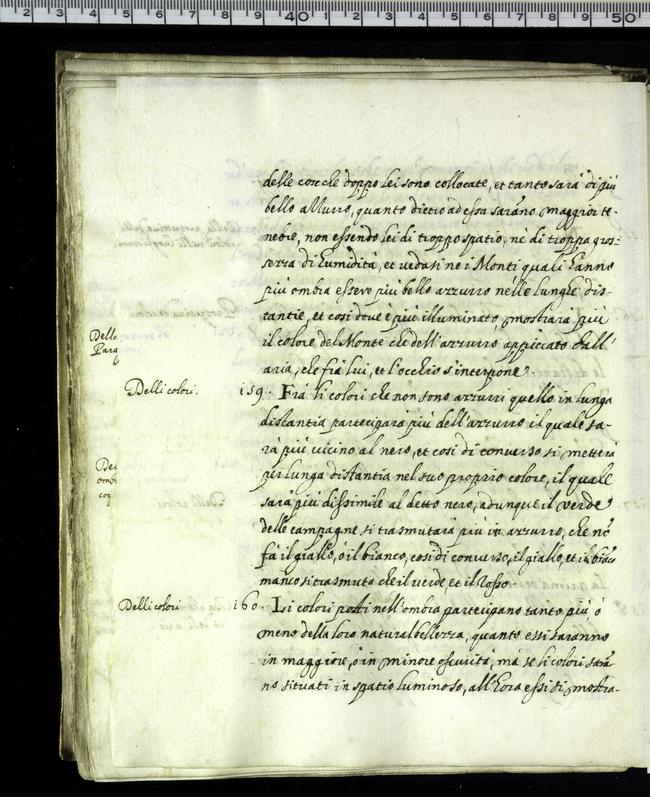 delle cose che doppo lei sono collocate, et tanto sarà di più
bello azurro, quanto dietro ad essa sarãno maggior te-
nebre, non essendo lei di troppo spatio, nè di troppa gros-
sezza di humidità, et vedasi ne i Monti quali hanno
più ombra essere più bello azzurro nelle lunghe dis-
tantie, et cosi dove è più illuminato, mostrarà più
il colore del Monte che dell'azzurro appiccato dall'
Della
Para
aria, che frà lui, et l'occhio s'interpone.
Delli colori. 159. Frà li colori che non sono azzurri quello in lunga
distantia parteciparà più dell'azzurro il quale sa-
rà più vicino al nero, et cosi di converso si metterà
per lunga distantia nel suo proprio colore, il quale
sarà più dissimile al detto nero, adunque il verde
delle campagne si trasmutarà più in azzurro, che nõ
fà il giallo, ò il bianco, cosi di converso, il giallo, et il bianco
manco si trasmuta che il verde, et il rosso.
Delli colori 160. Li colori posti nell'ombra partecipano tanto più ò
meno della loro natural bellezza, quanto essi saranno
in maggiore, ò in minore oscurità, mà se li colori sarã
no situati in spatio luminoso, all'hora essi si mostra-